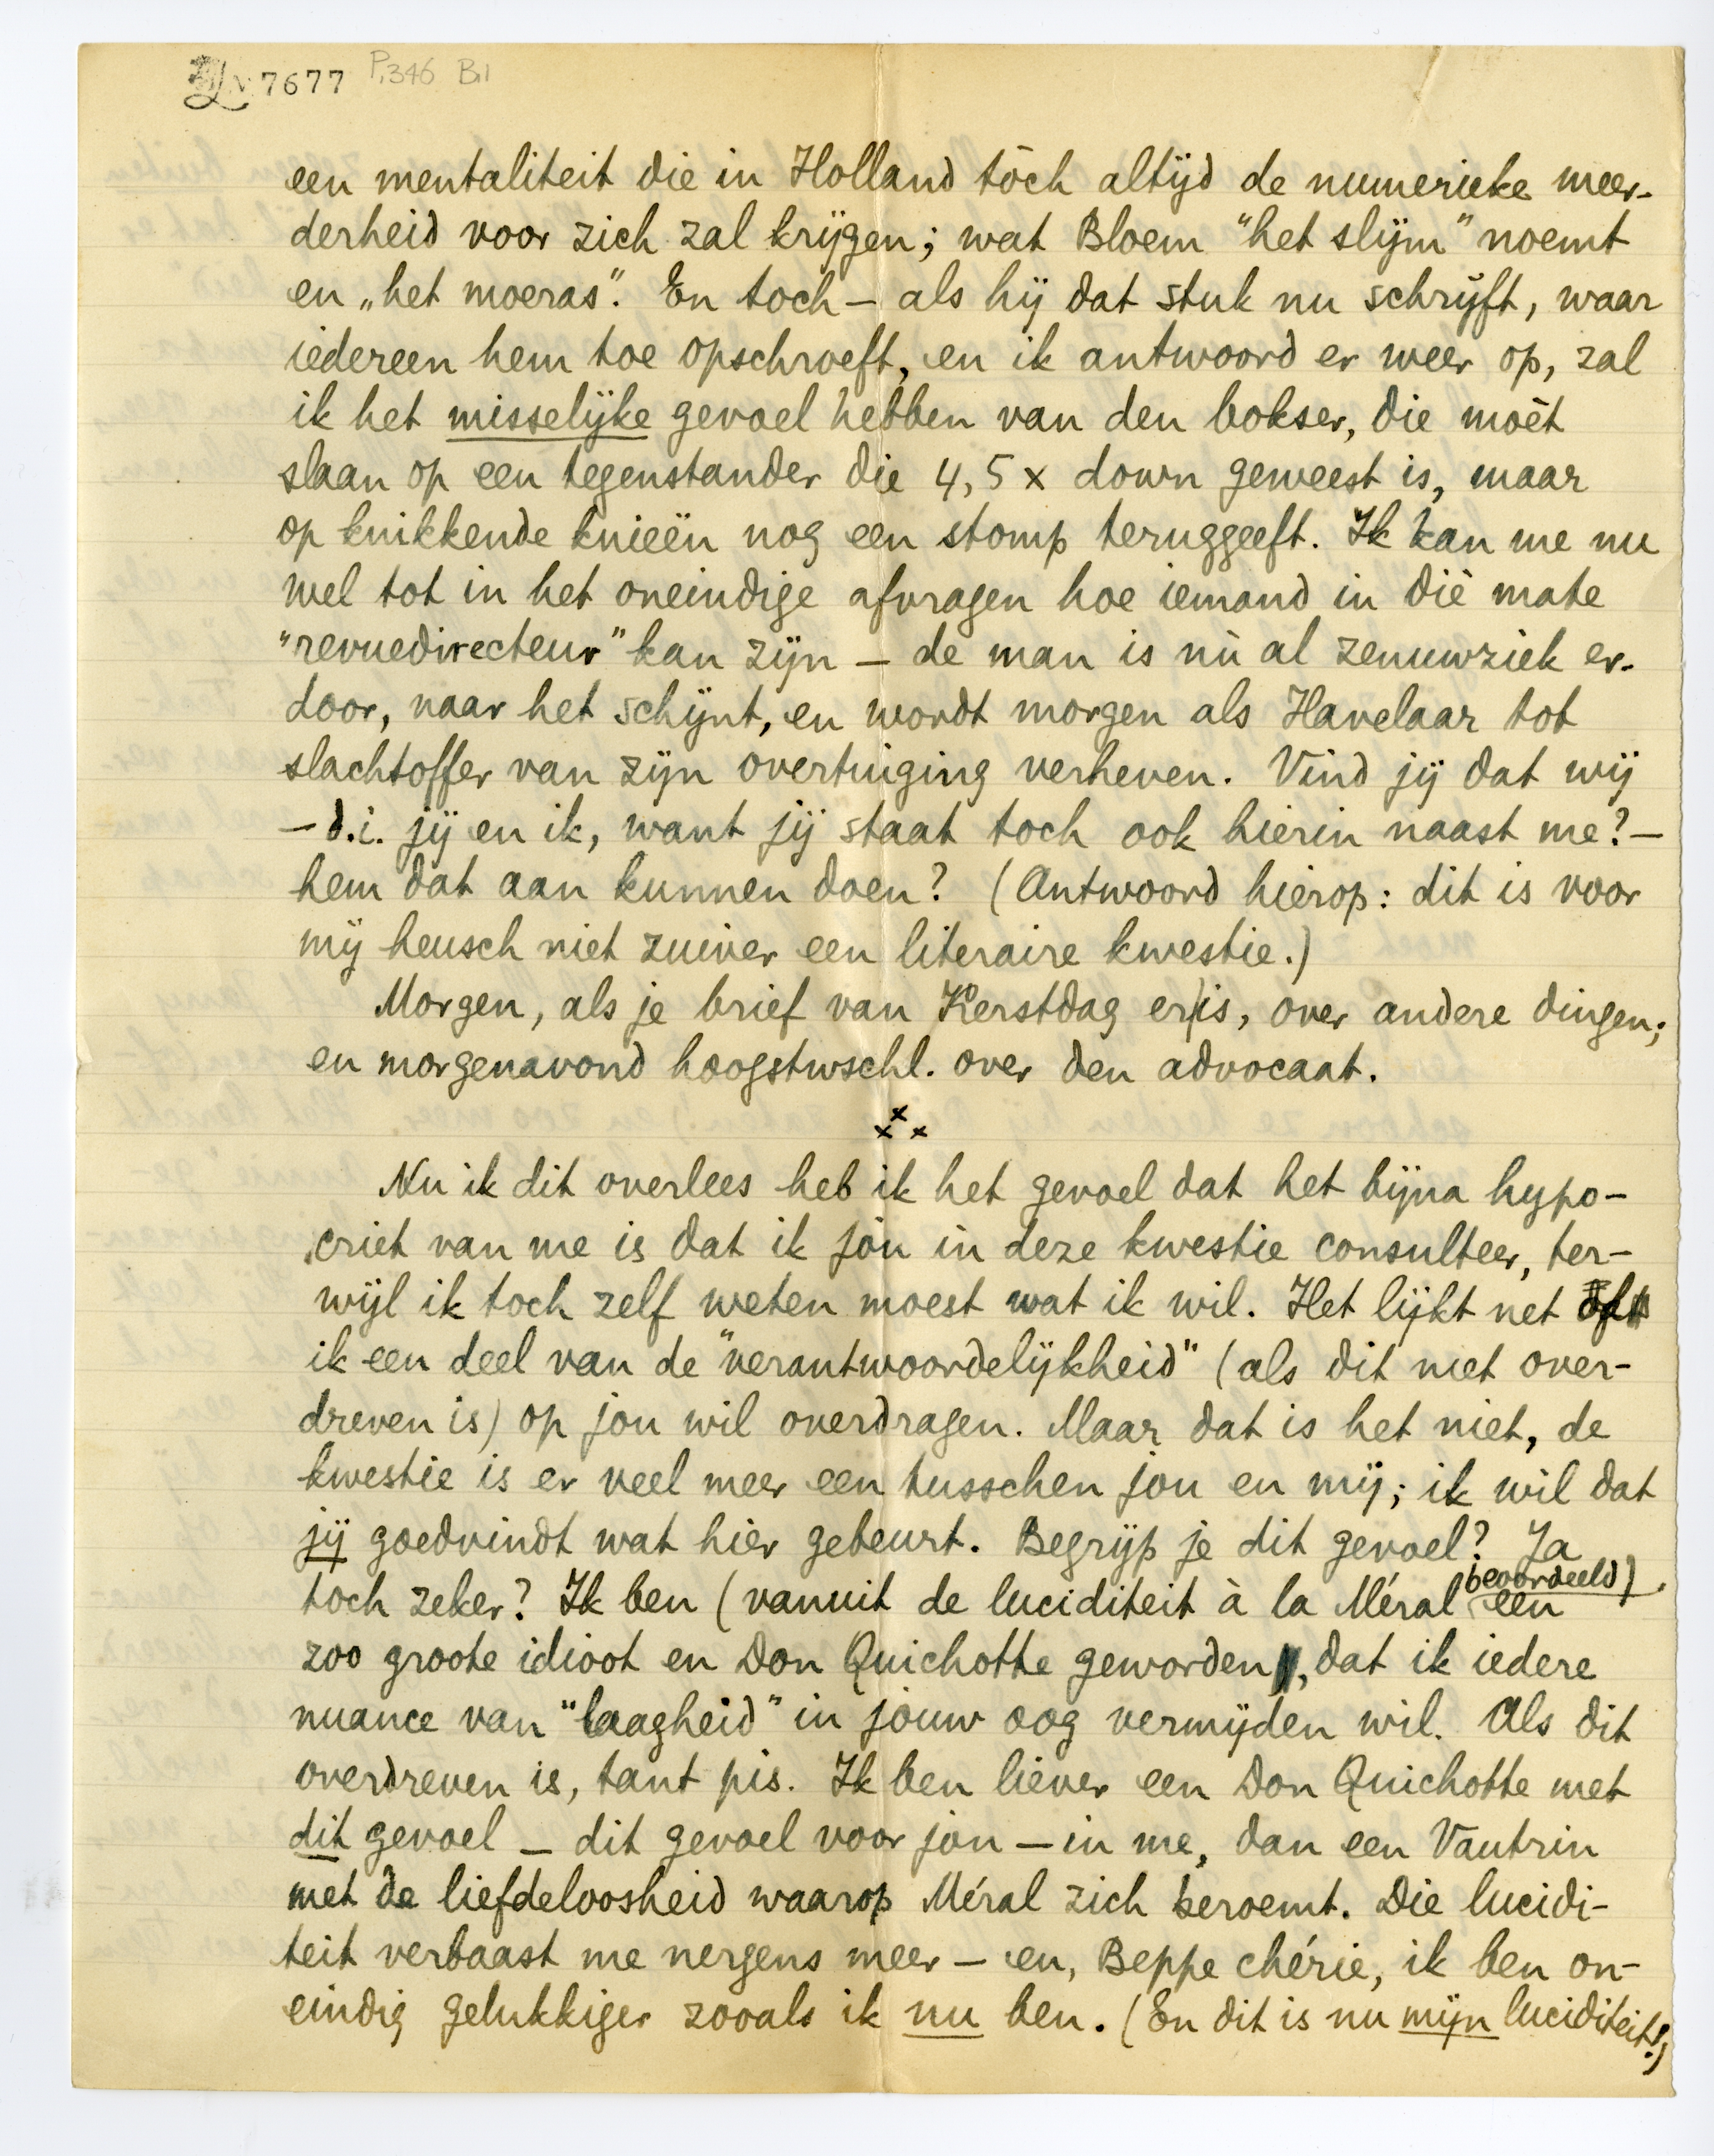 7677 P.346 B.1
een mentaliteit die in Holland tòch altijd de numerieke meer-
derheid voor zich zal krijgen; wat Bloem "het slijm" noemt
en „het moeras". En toch — als hij dat stuk nu schrijft, waar
iedereen hem toe opschroeft, en ik antwoord er weer op, zal
ik het misselijke gevoel hebben van den bokser, die moèt
slaan op een tegenstander die 4, 5 x down geweest is, maar
op knikkende knieën nog een stomp teruggeeft. Ik kan me nu
wel tot in het oneindige afvragen hoe iemand in diè mate
"revuedirecteur" kan zijn — de man is nù al zenuwziek er-
door, naar het schijnt, en wordt morgen als Havelaar tot
slachtoffer van zijn overtuiging verheven. Vind jij dat wij
— d.i. jij en ik, want jij staat toch ook hierin naast me? —
hem dat aan kunnen doen? (Antwoord hierop: dit is voor
mij heusch niet zuiver een literaire kwestie.)
Morgen, als je brief van Kerstdag er is, over andere dingen;
en morgenavond hoogstwschl. over den advocaat.
x x x
Nu ik dit overlees heb ik het gevoel dat het bijna hypo-
criet van me is dat ik jòu in deze kwestie consulteer, ter-
wijl ik toch zelf weten moest wat ik wil. Het lijkt net of
ik een deel van de "verantwoordelijkheid" (als dit niet over-
dreven is) op jou wil overdragen. Maar dat is het niet, de
kwestie is er veel meer een tusschen jou en mij; ik wil dat
jij goedvindt wat hier gebeurt. Begrijp je dit gevoel? Ja
toch zeker? Ik ben (vanuit de luciditeit à la Méral beoordeeld) een
zoo groote idioot en Don Quichotte geworden, dat ik iedere
nuance van "laagheid" in jouw oog vermijden wil. Als dit
overdreven is, tant pis. Ik ben liever een Don Quichotte met
dit gevoel — dit gevoel voor jou — in me, dan een Vautrin
met de liefdeloosheid waarop Méral zich beroemt. Die lucidi-
teit verbaast me nergens meer — en, Beppe chérie, ik ben on-
eindig gelukkiger zooals ik nu ben. (En dit is nu mijn luciditeit!)